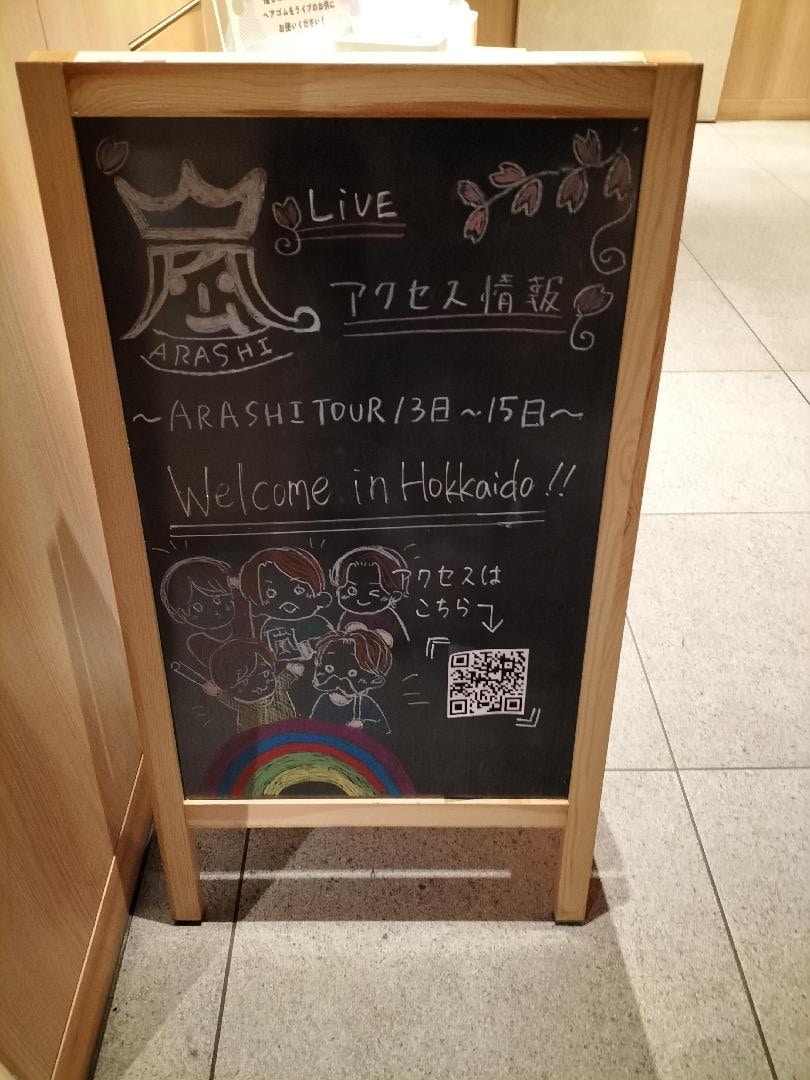 ヘアゴムをライブのお供に
お使いください！
LiVE
アクセス情報
ARASHI
〜ARASHI TOUR 13日〜15日〜
Welcome in Hokkaido!!
アクセスは
こちら